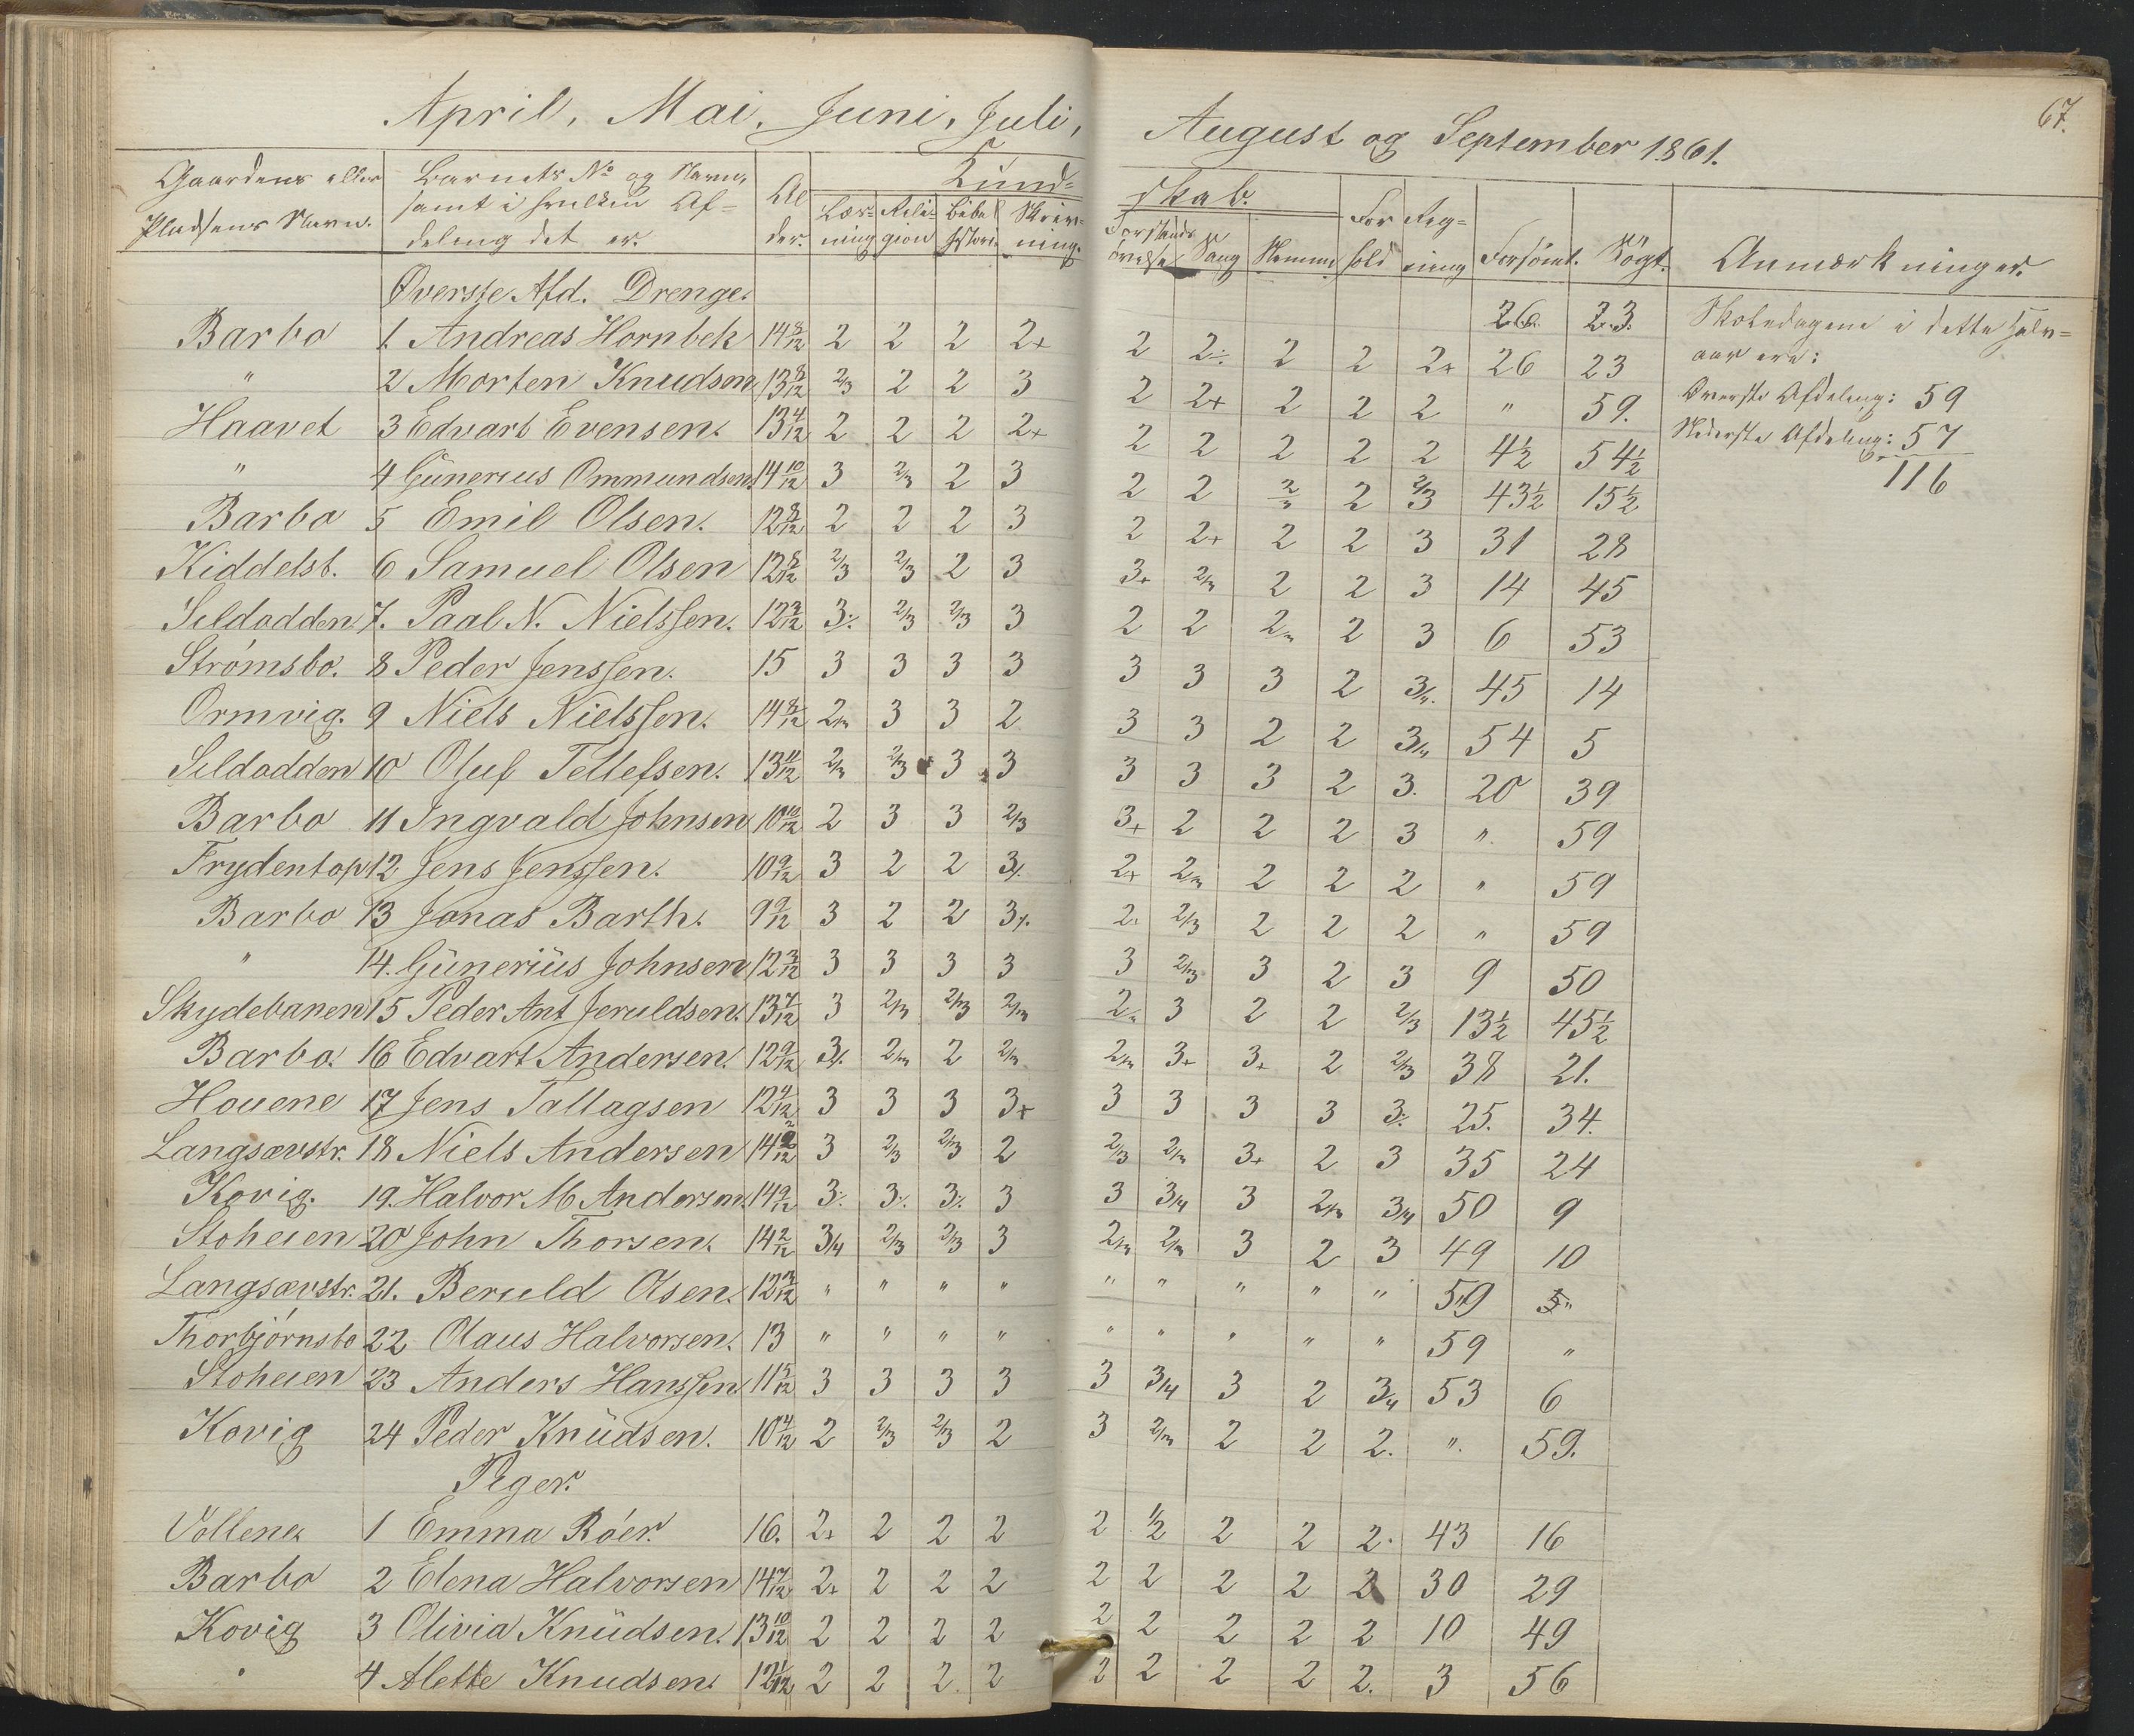 April, Mai, Juni, Juli, August og September 1861. 67.
Gaardens eller Pladsens Navn. Barnets No og Navn, samt i hvilken Afdeling det er. Alder. Kundskab. Læsning Religion Bibelhistorie Skrivning. Forstandsøvelse Sang Nemme Forhold Regning Forsömt. Sögt. Anmærkninger.
Øverste Afd. Drenge. 26. 23.
Barbo 1. Andreas Hornbek 14 8/12 2 2 2 2+ 2 2÷ 2 2 2+ 26 23
" 2 Morten Knudsen 13 8/12 2/3 2 2 3 2 2+ 2 2 2 " 59.
Haavet 3 Edvart Evensen. 13 4/12 2 2 2 2+ 2 2 2 2 2 4½ 54½
" 4 Günerius Ommundsen. 14 10/12 3 2/3 2 3 2 2 2/3 2 2/3 43½ 15½
Barbo 5 Emil Olsen. 12 8/12 2 2 2 3 2 2+ 2 2 3 31 28
Kiddelsb. 6 Samuel Olsen 12 8/12 2/3 2/3 2 3 3+ 2/3 2 2 3 14 45
Sildodden 7. Paal N. Nielssen. 12 3/12 3÷ 2/3 2/3 3 2 2 2/3 2 3 6 53
Strömsbo. 8 Peder Jenssen. 15 3 3 3 3 3 3 3 2 3/4. 45 14
Ormvig. 9 Niels Nielssen. 14 8/12 2/3 3 3 2 3 3 2 2 3/4 54 5
Sildodden 10 Oluf Tellefsen. 13 11/12 2/3 2/3 3 3 3 3 3 2 3. 20 39
Barbo 11 Ingvald Johnsen 10 10/12 2 3 3 2/3 3+ 2 2 2 3 " 59
Frydentop 12 Jens Jenssen. 10 9/12 3 2 2 3÷ 2+ 2/3 2 2 2 " 59
Barbo 13 Jonas Barth. 9 9/12 3 2 2 3÷ 2+ 2/3 2 2 2 " 59
" 14. Günerius Johnsen 12 3/12 3 3 3 3 3 2/3 3 2 3 9 50
Skydebanen 15 Peder Ant Jeruldsen. 13 7/12 3 2/3 2/3 2/3 2/3 3 2 2 2/3 13½ 45½
Barbo. 16 Edvart Andersen. 12 9/12 3÷ 2/3 2 2/3 2/3 3+ 3+ 2 2/3 38 21.
Houene 17 Jens Tallagsen 12 4/12 3 3 3 3+ 3 3 3 3 3÷ 25. 34.
Langsævstr. 18 Niels Andersen 14 2/12 3 2/3 2/3 2 2/3 2/3 3+ 2 3 35 24
Kovig. 19. Halvor M Andersen. 14 9/12 3÷ 3÷ 3÷ 3 3 3/4 3 2/3 3/4 50 9
Stoheien 20 John Thorsen. 14 2/12 3/4 2/3 2/3 3 2/3 2/3 3 2 3 49 10
Langsævstr. 21. Beruld Olsen. 12 3/12 " " " " " " " " " 59 "
Thorbjörnsbo 22 Olaus Halvorsen. 13 " " " " " " " " " 59 "
Stoheien 23 Anders Hanssen 11 5/12 3 3 3 3 3 3/4 3 2 3/4 53 6
Kovig 24 Peder Knüdsen. 10 4/12 2 2/3 2/3 2 3 2/3 2 2 2. ". 59.
Piger.
Vollene. 1 Emma Röer. 16. 2+ 2 2 2 2 1/2 2 2 2. 43 16
Barbo 2 Elena Halvorsen 14 7/12 2+ 2 2 2 2 2 2 2 2 30 29
Kovig 3 Olivia Knüdsen. 13 10/12 2 2 2 2 2 2 2 2 2 10 49
" 4 Alette Knudsen. 12 1/12 2 2 2. 2 2 2 2 2 2. 3 56
Skoledagene i dette Halv=
aar ere:
Øverste Afdeling: 59
Nederste Afdeling: 57
116